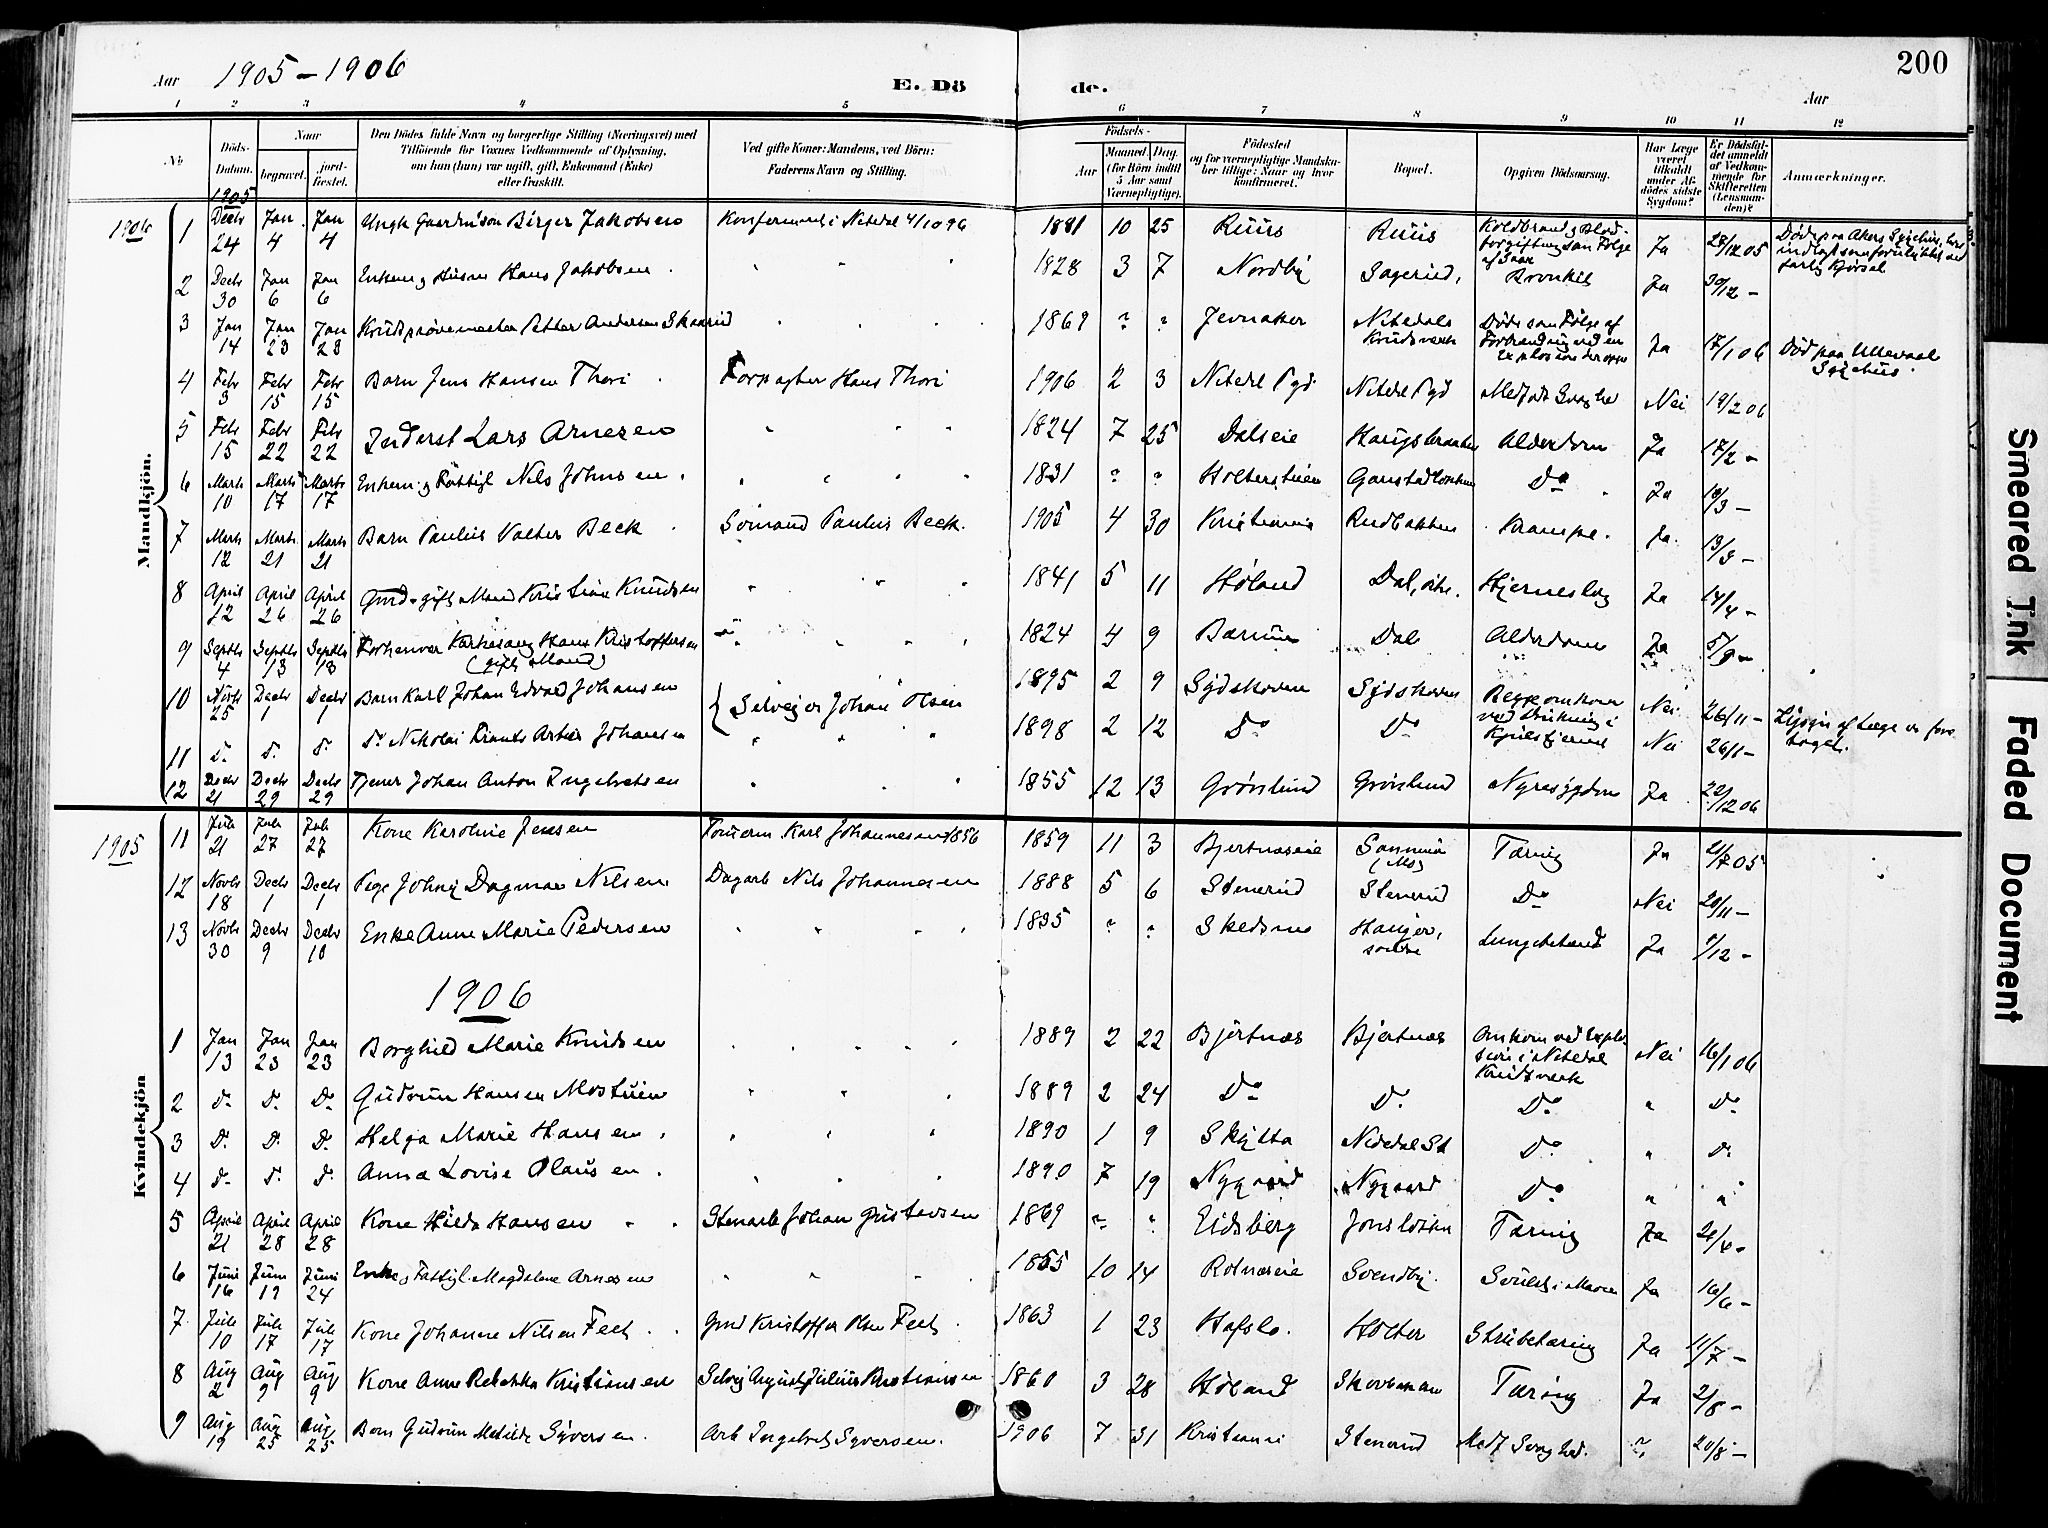 Aar 1905-1906
E. Dö de.
Aar
200
1 2 3 4 5 6 7 8 9 10 11 12
No
Döds-Datum.
Naar
begravet.
jord-fæstet.
Den Dödes fulde Navn og borgerlige Stilling (Næringsvei) med
Tilföiende for Voxnes Vedkommende af Oplysning,
om han (hun) var ugift, gift, Enkemand (Enke)
eller fraskilt.
Ved gifte Koner: Mandens, ved Börn:
Faderens Navn og Stilling.
Födsels-
Aar
Maaned. Dag.
(for Börn indtil
5 Aar samt
Værnepligtige).
Födested
og for værnepligtige Mandskaber tillige: Naar og hvor
konfirmeret.
Bopæl.
Opgiven Dödsaarsag.
Har Læge
været
tilkaldt
under Afdödes sidste
Sygdom?
Er Dödsfaldet anmeldt
af Vedkommende for
Skifteretten
(Lensmanden)?
Anmærkninger.
Mandkjön.
1906
1905
1 Decbr 24 Jan 4 Jan 4 Ungk Gaardmson Birger Jakobsen Konfirmeret i Nitedal 4/10 96 1881 10 25 Ruus Ruus Koldbrand & Blodforgiftning som Følge af Saar Ja 28/12 05
2 Decbr 30 Jan 6 Jan 6 Enkem & Husm Hans Jakobsen 1828 3 7 Nordby Sagerud, Bronkit Ja 30/12 -
3 Jan 14 Jan 23 Jan 23 Krudtprøvemester Petter Andersen Skaarud 1869 " " Jevnaker Nitedals Krudtværk Døde som Følge af Forbrænding ved en Explosion Ja 17/1 06 Død paa Ullevaal Sygehus.
4 Febr 3 Febr 15 Febr 15 Barn Jens Hansen Thori Forpagter Hans Thori 1906 2 3 Nitedal Pgd Nitedal Pgd Medfødt Svaghed Nei 19/2 06
5 Febr 15 Febr 22 Febr 22 Inderst Lars Arnesen 1824 7 25 Dalseie Haugsbraaten Alderdom Ja 17/2 -
6 Marts 10 Marts 17 Marts 17 Enkem. & Fattigl Nils Johnsen 1831 " " Holterstuen Do Ja 10/3 -
7 Marts 12 Marts 21 Marts 21 Barn Paulus Valter Beck Sømand Paulus Beck. 1905 4 30 Kristiania Rudbakken Krampe. Ja 13/3 -
8 April 12 April 26 April 26 Gmd. gift Mand Kristian Knudsen 1841 5 11 Høland Dal, østre. Hjerneslag Ja 14/4 -
9 Septbr 4 Septbr 13 Septbr 13 Forhenver Kirkesang Hans Kristoffersen (gift Mand) 1824 4 9 Bærum Dal Alderdom Ja 5/9 -
10 Novbr 25 Decbr 1 Decbr 1 Barn Karl Johan Edvard Johansen Selveier Johan Olsen 1895 2 9 Sydskoven Sydskoven Begge omkom ved Drukning i Nei 26/11 - Ligsyn af Læge er foretaget.
11 D. D. D. Do Nikolai Frants Artur Johansen 1898 2 12 Do Do Nei 26/11 -
12 Decbr 21 Decbr 29 Decbr 29 Tjener Johan Anton Ingebretsen 1855 12 13 Grønlund Grønlund Nyresygdom Ja 22/12 06
Kvindekjön
1905
11 Juli 21 Juli 27 Juli 27 Kone Karoline Jensen Karl Johannesen 1856 1859 11 3 Bjertnæseie Tæring Ja 21/7 05
12 Novbr 18 Decbr 1 Decbr 1 Pige Johny Dagmar Nilsen Dagarb Nils Johannesen 1888 5 6 Stenerud Stenerud Do Nei 20/11 -
13 Novbr 30 Decbr 9 Decbr 10 Enke Anne Marie Pedersen 1835 " " Skedsmo Hauger, søndre Lungebetænd Ja 1/12 -
1906
1 Jan 13 Jan 23 Jan 23 Borghild Marie Knudsen 1889 2 22 Bjertnæs Bjertnæs Omkom ved Explosion i Nitedal Krudtværk Nei 16/1 06
2 D. D. D. Gudrun Hansen Mostuen 1889 2 24 Do D. Do " D.
3 D. D. D. Helga Marie Hansen 1890 1 9 Skytta Nitedal St Do " D.
4 D. D. D. Anna Lovise Olausen 1890 7 19 Nygaard Nygaard Do " "
5 April 21 April 28 April 28 Kone Hilda Hansen Stenarb Johan Gustavsen 1869 " " Eidsberg Tæring Ja 21/4 -
6 Juni 16 Juni 19 Juni 24 Enke & Fattigl. Magdalene Arnesen 1855 10 14 Rotnæseie Svendby. Svulst i Maven Ja 16/6 -
7 Juli 10 Juli 17 Juli 17 Kone Johanne Nilsen Feet Gmd Kristoffer Olsen Feet 1863 1 23 Hafslo. Holter Strubetæring Ja 11/7 -
8 Aug 2 Aug 9 Aug 9 Kone Anne Rebekka Kristiansen Selvej August Julius Kristiansen 1860 3 28 Høland Skovbakken Tæring Ja 2/8 -
9 Aug 19 Aug 25 Aug 25 Barn Gudrun Matilde Syversen. Arb Ingebret Syversen. 1906 7 31 Kristiania Stenerud Medf Svaghed. " 20/8 -
Smeared Ink
Faded Document